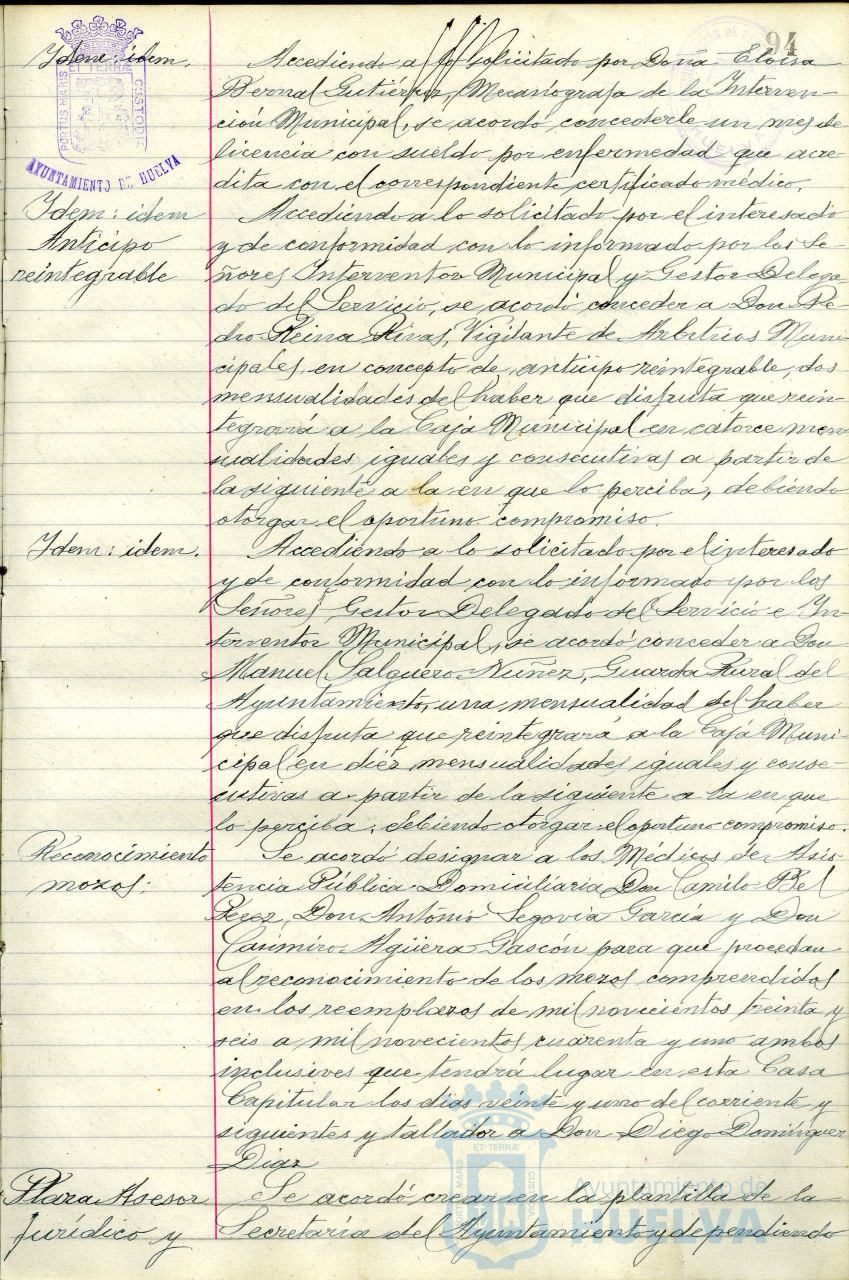 94
PORTUS MARIS ET TERRÆ CUSTODIA
AYUNTAMIENTO DE HUELVA
Idem: idem.
Accediendo a lo solicitado por Doña Eloisa
Bernal Gutiérrez, Mecanógrafa de la Interven-
ción Municipal, se acordó concederle un mes de
licencia con sueldo por enfermedad que acre-
dita con el correspondiente certificado médico.
Idem: idem
Anticipo
reintegrable
Accediendo a lo solicitado por el interesado
y de conformidad con lo informado por los Se-
ñores Interventor Municipal y Gestor Delega-
do del Servicio, se acordó conceder a Don Pe-
dro Reina Rivas, Vigilante de Arbitrios Muni-
cipales, en concepto de anticipo reintegrable, dos
mensualidades del haber que disfruta que rein-
tegrará a la Caja Municipal en catorce men-
sualidades iguales y consecutivas a partir de
la siguiente a la en que lo perciba, debiendo
otorgar el oportuno compromiso.
Idem: idem.
Accediendo a lo solicitado por el interesado
y de conformidad con lo informado por los
Señores Gestor Delegado del Servicio e In-
terventor Municipal, se acordó conceder a Don
Manuel Salguero Nuñez, Guarda Rural del
Ayuntamiento, una mensualidad del haber
que disfruta que reintegrará a la Caja Muni-
cipal en diez mensualidades iguales y conse-
cutivas a partir de la siguiente a la en que
lo perciba, debiendo otorgar el oportuno compromiso.
Reconocimiento
mozos:
Se acordó designar a los Médicos de Asis-
tencia Pública Domiciliaria Don Camilo Bel
Pérez, Don António Segovia García y Don
Casimiro Agüera Gascón para que procedan
al reconocimiento de los mozos comprendidos
en los reemplazos de mil novecientos treinta y
seis a mil novecientos cuarenta y uno ambos
inclusives que tendrá lugar en esta Casa
Capitular los dias veinte y uno del corriente y
siguientes y tallador a Don Diego Domínguez
Diaz
Plaza Asesor
Jurídico y
Se acordó crear en la plantilla de la
Secretaría del Ayuntamiento y dependiendo
PORTUS MARIS ET TERRÆ CUSTODIA
Ayuntamiento de
HUELVA